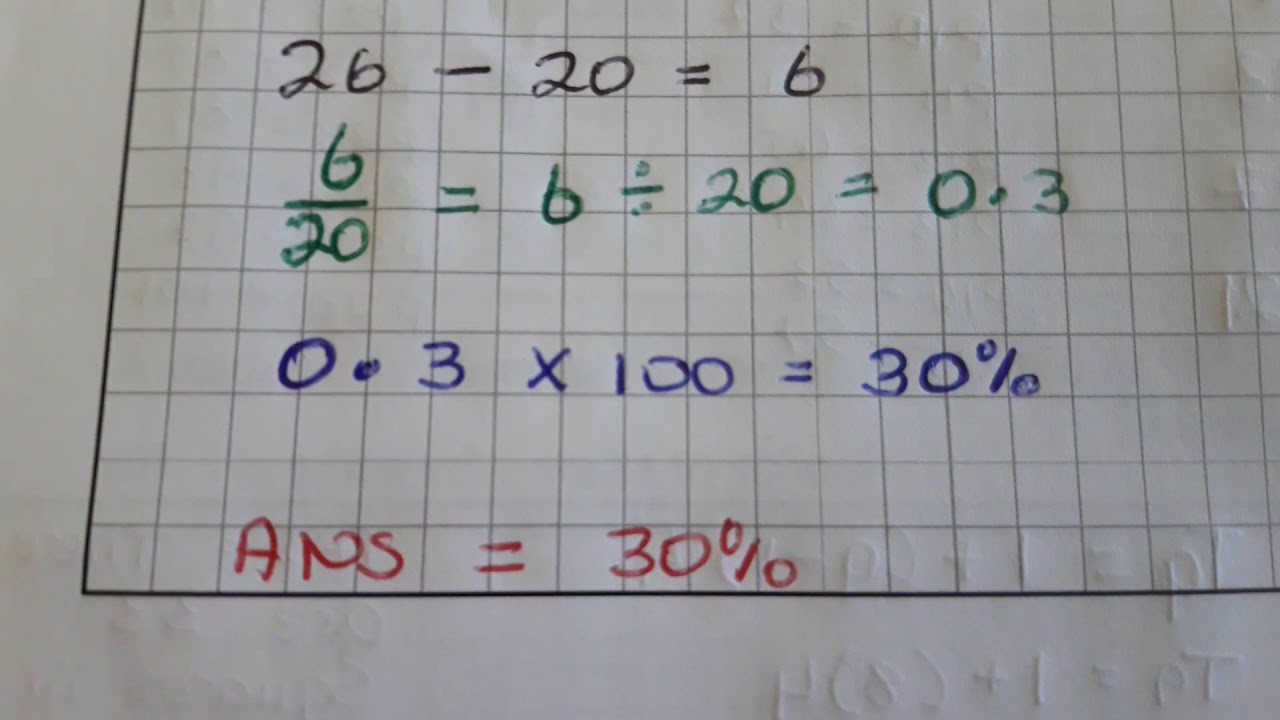 26 - 20 = 6
6/20 = 6 ÷ 20 = 0.3
0.3 x 100 = 30%
ANS = 30%